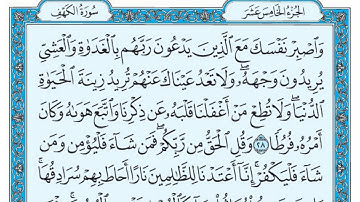 الجزء الخامس عشر
سورة الكهف
وَٱصۡبِرۡ نَفۡسَكَ مَعَ ٱلَّذِينَ يَدۡعُونَ رَبَّهُم بِٱلۡغَدَوٰةِ وَٱلۡعَشِيِّ
يُرِيدُونَ وَجۡهَهُۥۖ وَلَا تَعۡدُ عَيۡنَاكَ عَنۡهُمۡ تُرِيدُ زِينَةَ ٱلۡحَيَوٰةِ
ٱلدُّنۡيَاۖ وَلَا تُطِعۡ مَنۡ أَغۡفَلۡنَا قَلۡبَهُۥ عَن ذِكۡرِنَا وَٱتَّبَعَ هَوَىٰهُ وَكَانَ
أَمۡرُهُۥ فُرُطٗا ٢٨ وَقُلِ ٱلۡحَقُّ مِن رَّبِّكُمۡۖ فَمَن شَآءَ فَلۡيُؤۡمِن وَمَن
شَآءَ فَلۡيَكۡفُرۡۚ إِنَّآ أَعۡتَدۡنَا لِلظَّٰلِمِينَ نَارًا أَحَاطَ بِهِمۡ سُرَادِقُهَاۚ